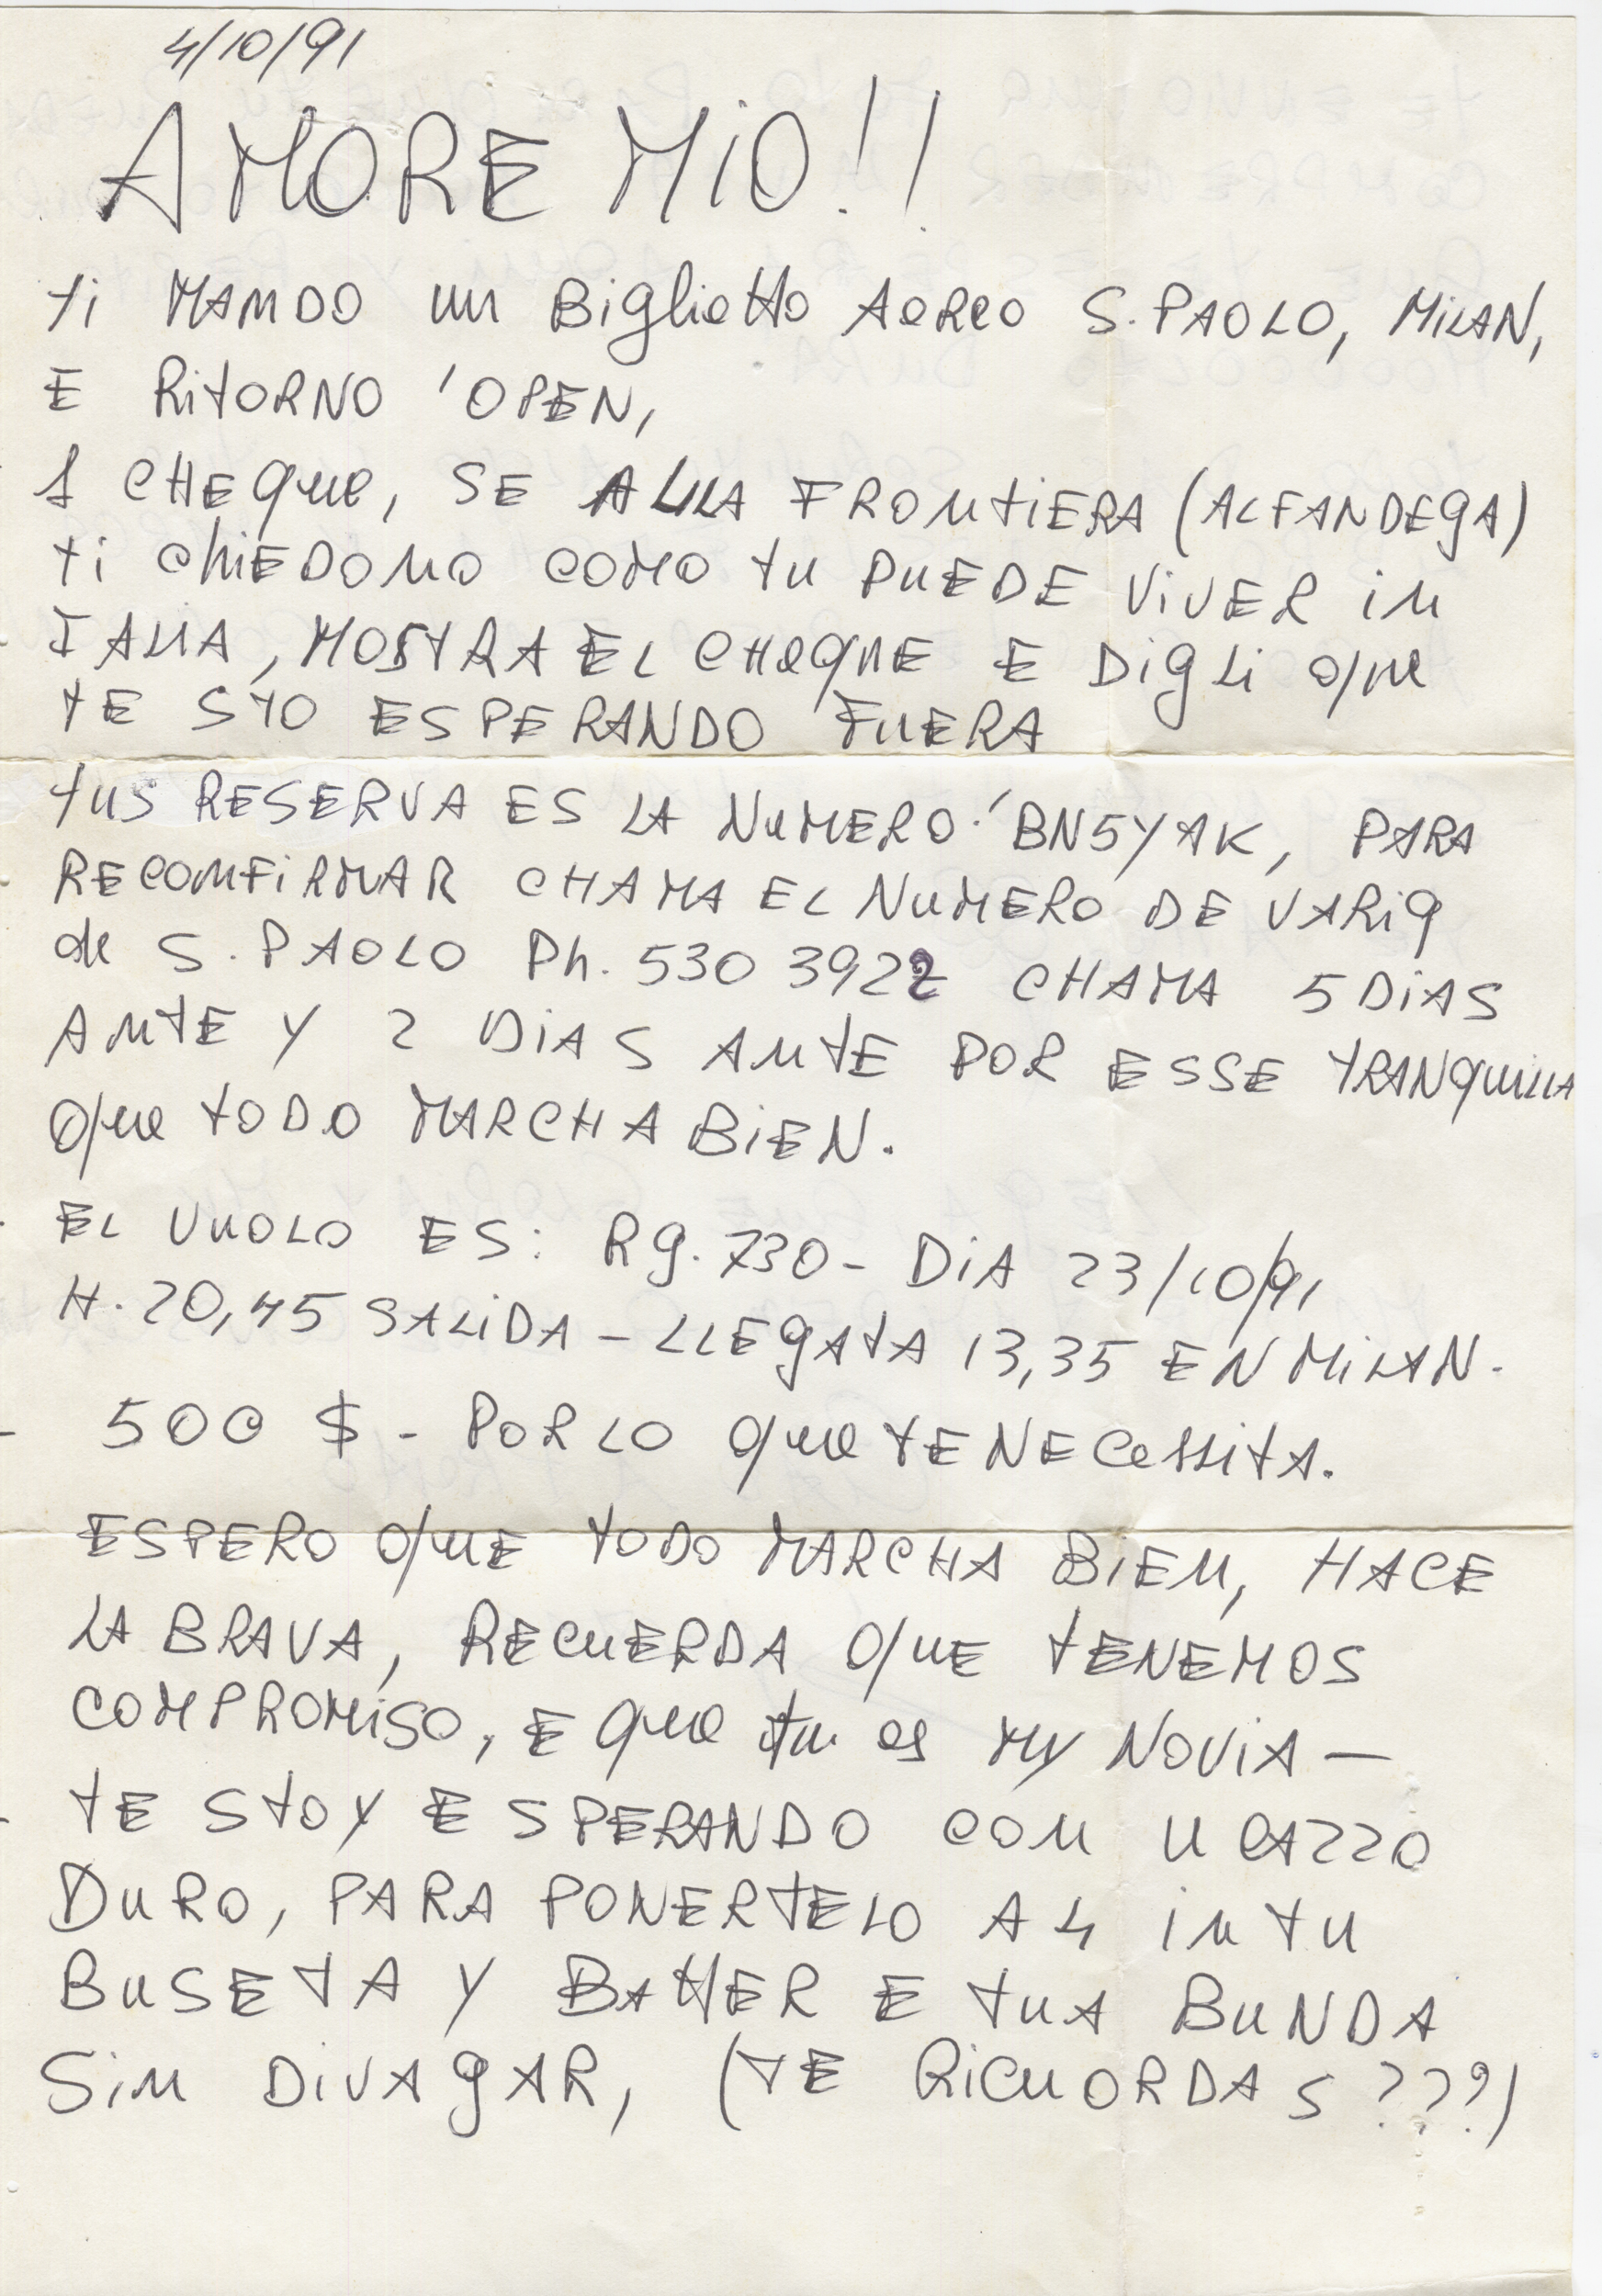 4/10/91
AMORE MIO!!
ti MANDO un Biglietto AeReo S. PAOLO, MiLAN,
E RitORNO 'OPEN,
1 CHEque, SE ALLA FRONtiERA (ALFANDEgA)
ti chiEDONO COMO tu PUEDE ViVER in
ITALIA, MOStRA EL CHeqUE E DigLi que
tE StO ESPERANDO FUERA
tUS RESERVA ES LA NuMERO: 'BN5YAK, PARA
RECONFiRMAR CHAMA EL NuMERO DE VARig
de S. PAOLO Ph. 530 3922 CHAMA 5 DiAS
ANtE Y 2 DiAS ANtE POR ESSE tRANquiLLA
que tODO MARCHA BiEN.
EL VUOLO ES: Rg. 730 - DiA 23/10/91
H. 20,45 SALiDA - LLEgAtA 13,35 EN MiLAN -
- 500 $ - PoR LO que tE NECessitA.
ESPERO quE tODO MARCHA BiEN, HACE
LA BRAVA, RECuERDA quE tENEMOS
COMPROMiSO, E que tu es MY NOViA —
- tE StOY ESPERANDO CON U CAZZO
DURO, PARA PONERtELO A 4 in tu
BuSEtA Y BAttER E tuA BuNDA
SiN DiVAgAR, (tE RiCuORDAS ???)